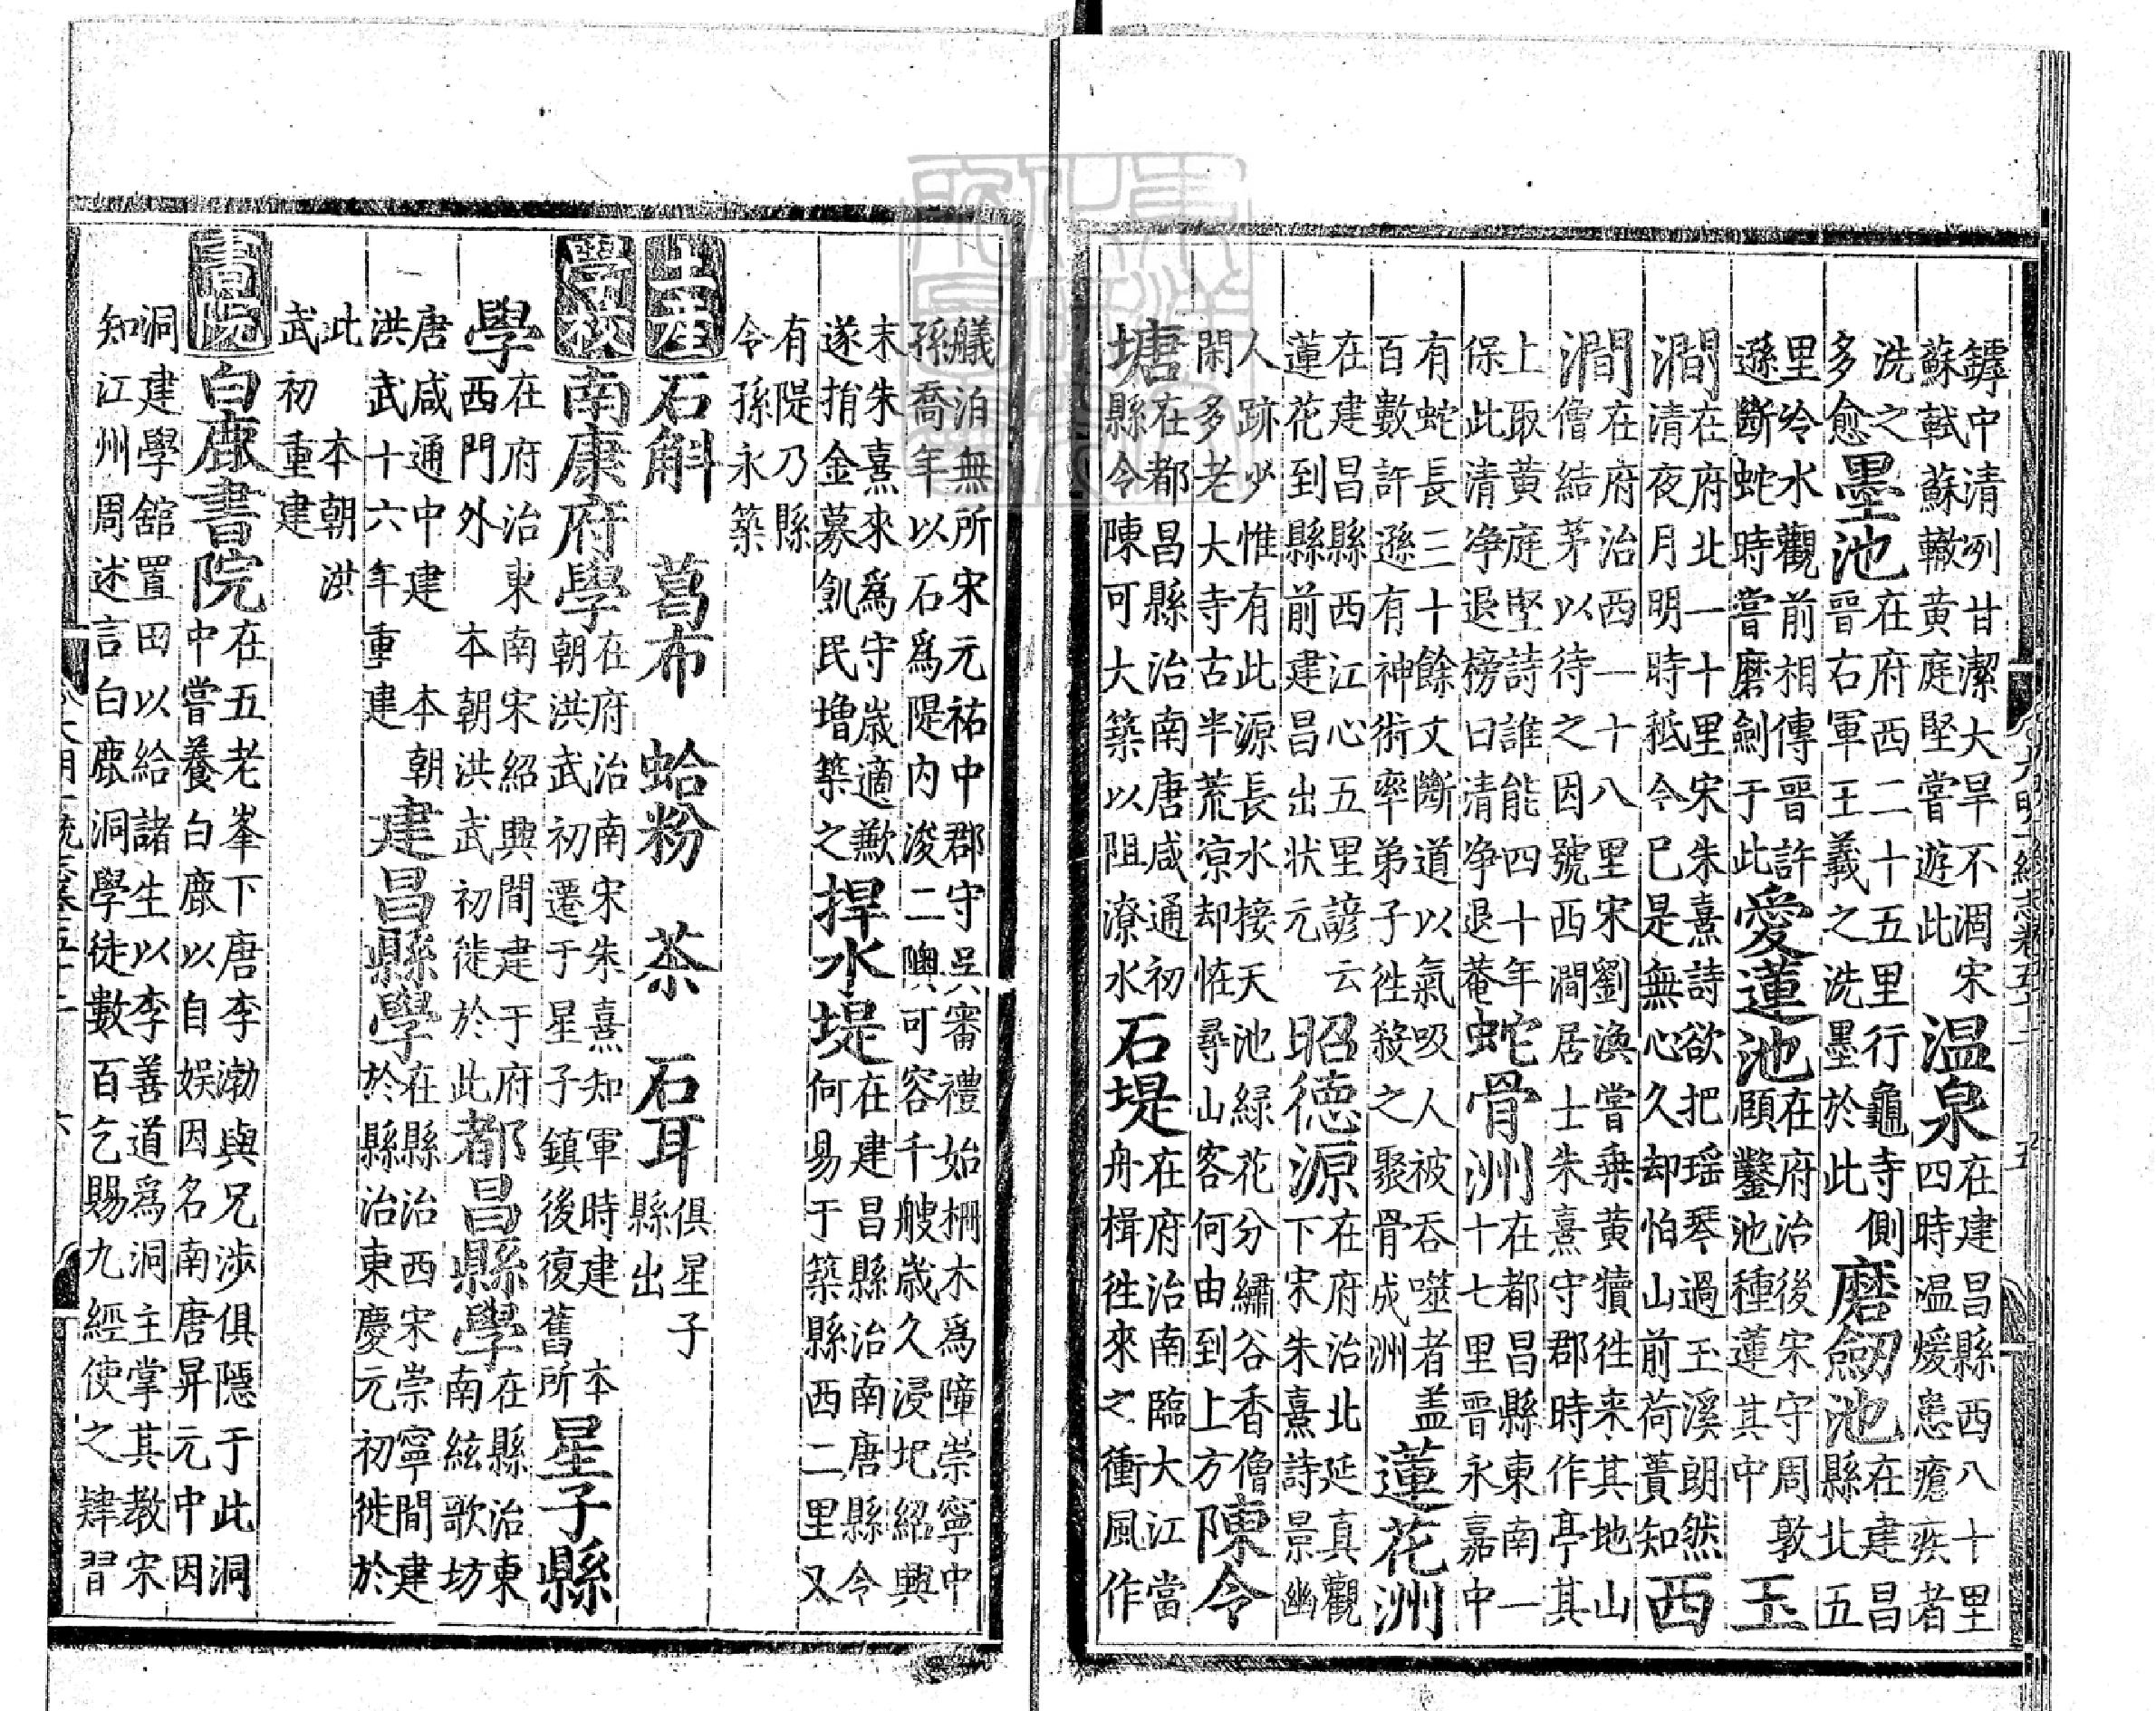 鐔中清冽甘潔大旱不涸宋
蘇軾蘇轍黄庭堅嘗遊此
温泉
在建昌縣西八十里
四時温煖患瘡疾者
洗之
多愈
墨池
在府西二十五里行龜寺側
晉右軍王羲之洗墨於此
磨劒池
在建昌
縣北五
里冷水觀前相傳晉許
遜斷蛇時嘗磨劍于此
愛蓮池
在府治後宋守周敦
頤鑿池種蓮其中
玉
澗
在府北一十里宋朱熹詩欲把瑶琴過玉溪朗然
清夜月明時秪今已是無心久却怕山前荷蕢知
西
澗
在府治西一十八里宋劉渙嘗乗黄犢徃来其地山
僧結茅以待之因號西澗居士朱熹守郡時作亭其
上取黄庭堅詩誰能四十年
保此清净退榜曰清净退菴
蛇骨洲
在都昌縣東南一
十七里晉永嘉中
有蛇長三十餘丈斷道以氣吸人被吞噬者盖
百數許遜有神術率弟子徃殺之聚骨成洲
蓮花洲
在建昌縣西江心五里諺云
蓮花到縣前建昌出状元
昭德源
在府治北延真觀
下宋朱熹詩景幽
人跡少惟有此源長水接天池緑花分繡谷香僧
閑多老大寺古半荒凉却恠尋山客何由到上方
陳令
塘
在都昌縣治南唐咸通初
縣令陳可大築以阻潦水
石堤
在府治南臨大江當
舟楫徃來之衝風作
艤泊無所宋元祐中郡守吳審禮始柵木爲障崇寧中
孫喬年以石爲隄内浚二隩可容千艘歳久浸圮紹興
末朱熹來爲守歳適歉
遂捐金募飢民増築之
捍水堤
在建昌縣治南唐縣令
何易于築縣西二里又
有隄乃縣
令孫永築
土産 石斛 葛布 蛤粉 茶 石耳
俱星子
縣出
學校 南康府學
在府治南宋朱熹知軍時建 本
朝洪武初遷于星子鎮後復舊所
星子縣
學
在府治東南宋紹興間建于府
西門外 本朝洪武初徙於此
都昌縣學
在縣治東
南絃歌坊
唐咸通中建 本朝
洪武十六年重建
建昌縣學
在縣治西宋崇寧間建
於縣治東慶元初徙於
此 本朝洪
武初重建
書院 白鹿書院
在五老峯下唐李渤與兄涉俱隱于此洞
中嘗養白鹿以自娱因名南唐昇元中因
洞建學舘置田以給諸生以李善道爲洞主掌其教宋
知江州周述言白鹿洞學徒數百乞賜九經使之肄習
大明一統志卷五十二
五
大明一統志卷五十二
六